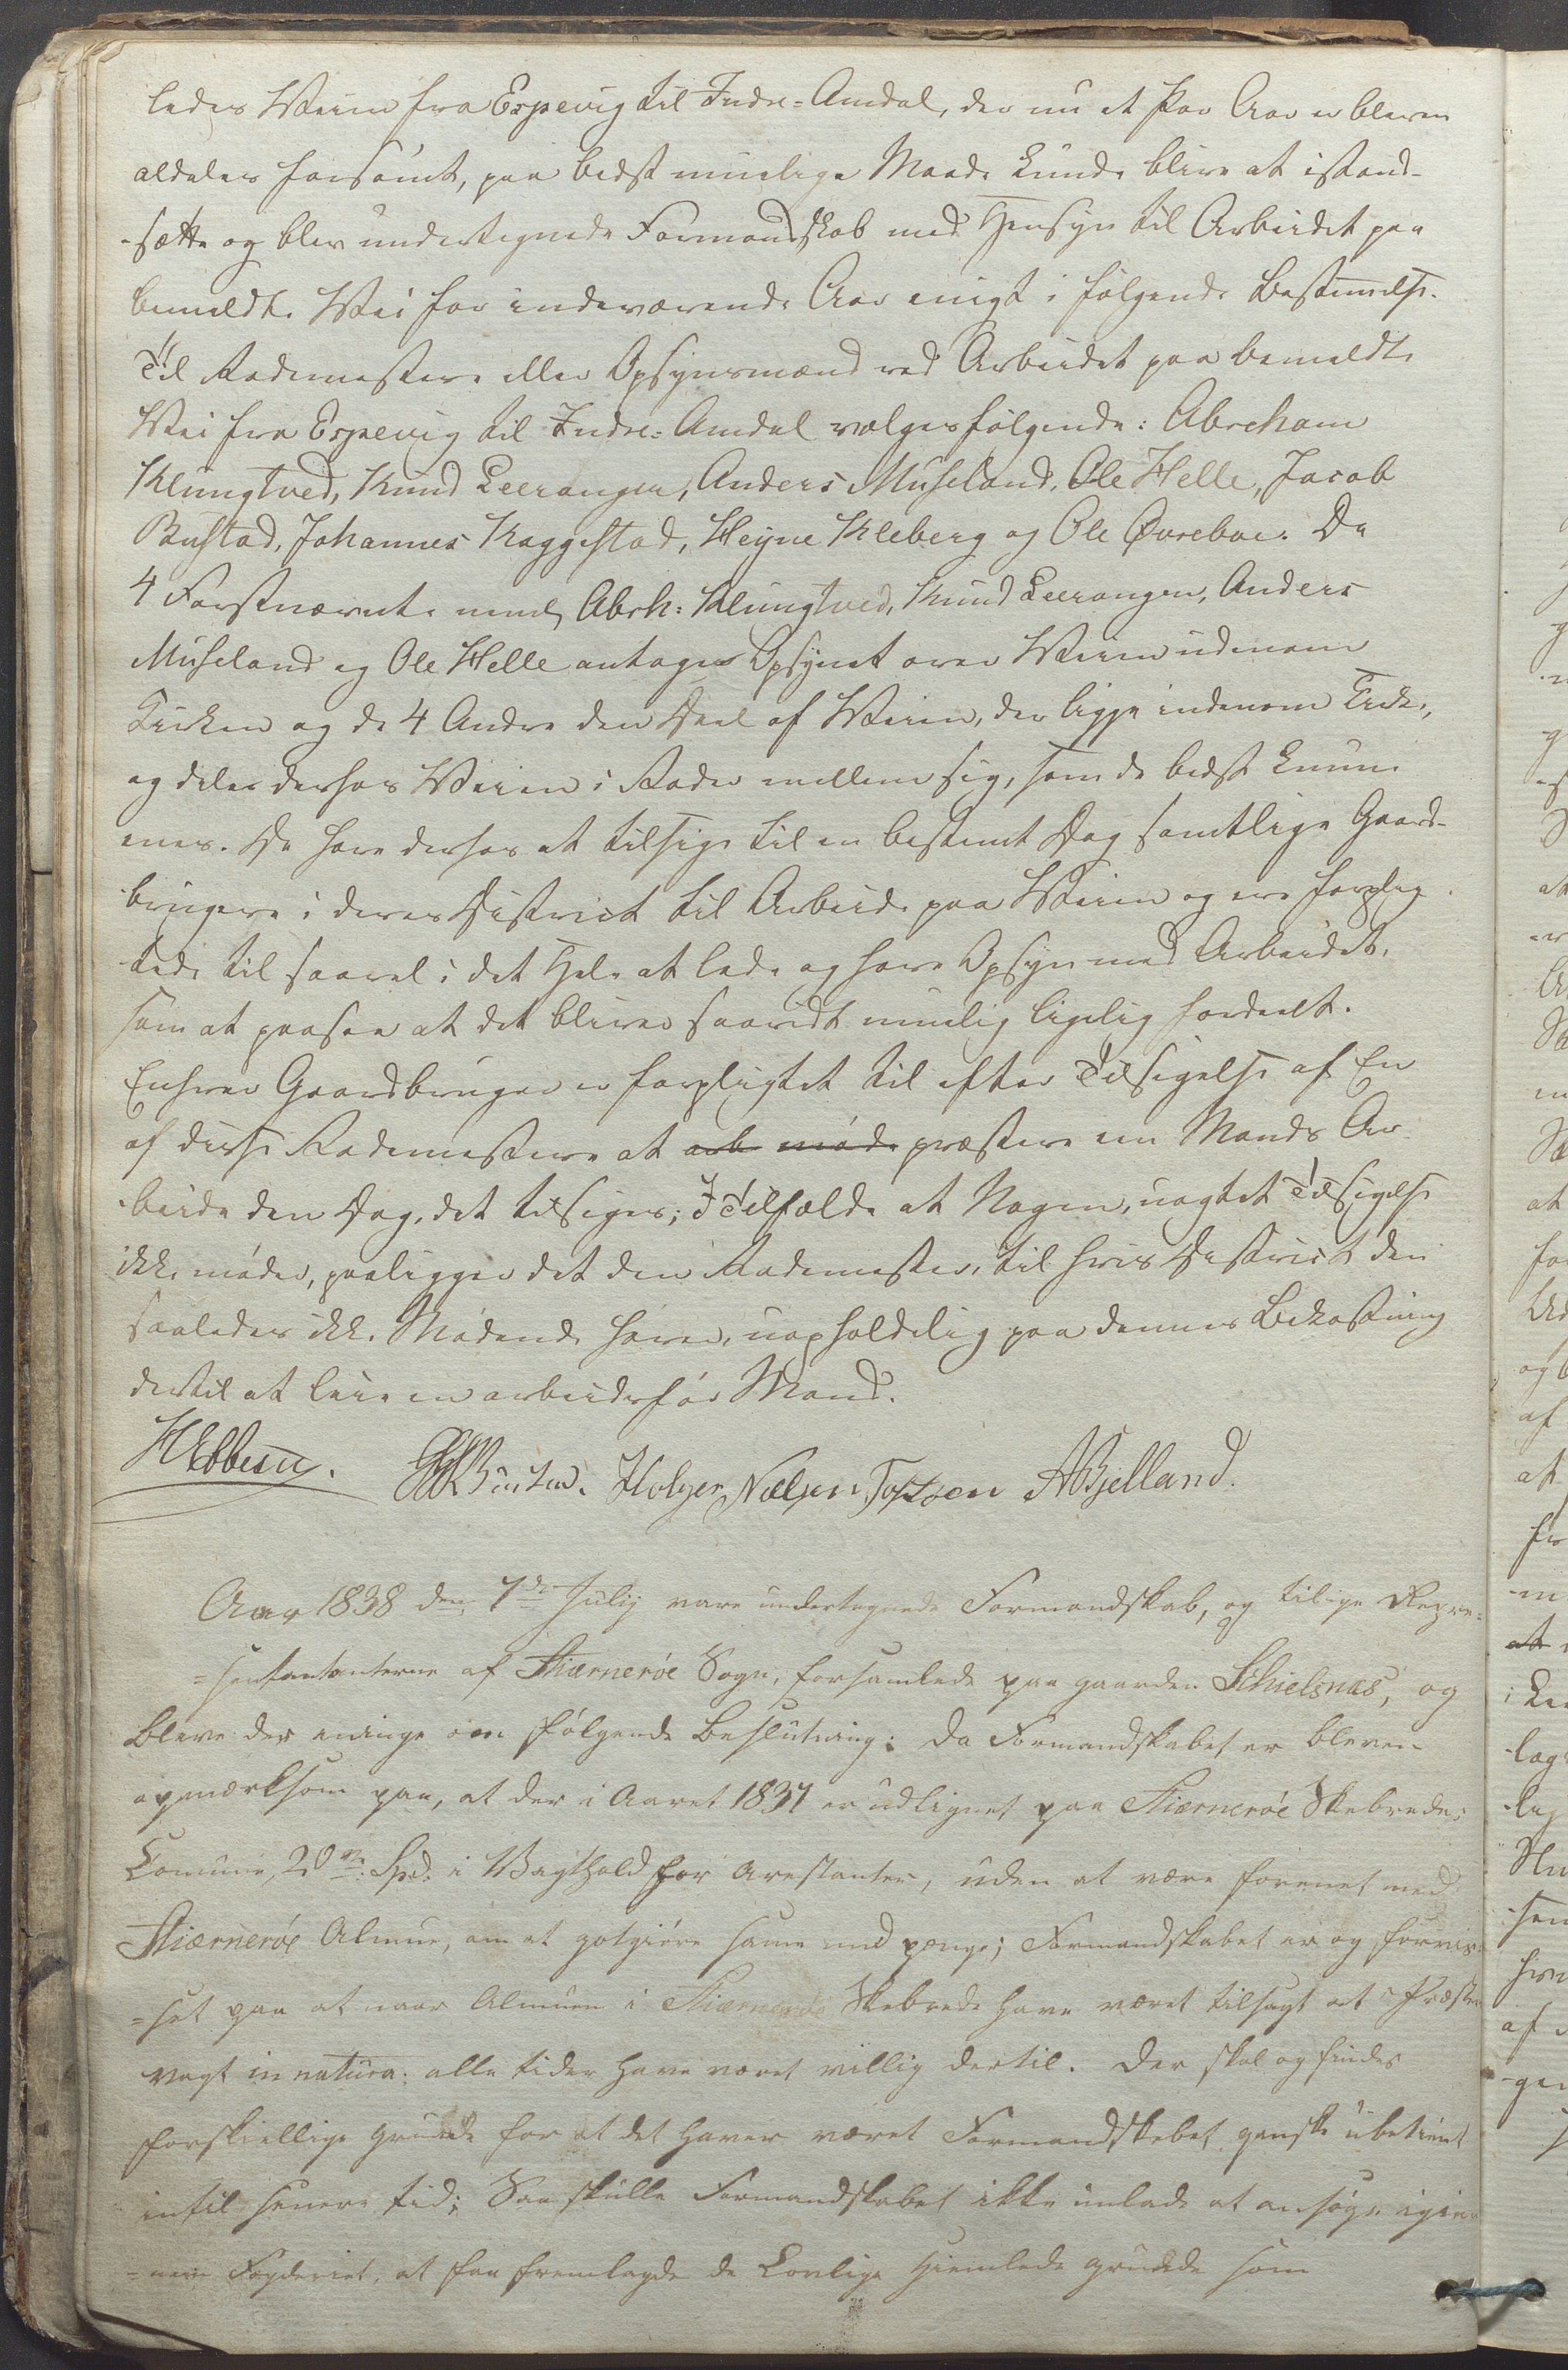 ledes Veien fra Espevig til Indre-Amdal, der nu et Par Aar er bleven
aldeles forsömt, paa bedst muelige Maade kunde blive at istand-
-sætte og blev undertegnede Formandskab med Hensyn til Arbeidet paa
bemeldte Vei for indeværende Aar enigt i følgende Bestemmelse.
Til Rodemestere eller Opsynsmænd ved Arbeidet paa bemeldte
Vei fra Espevig til Indre-Amdal vælges følgende: Abraham
Klungtved, Knud Leerangen, Anders Museland, Ole Helle, Jacob
Bustad, Johannes Kaggestad, Heyne Kleberg og Ole Øvreboe. De
4 Førstnævnte neml. Abrh: Klungtved, Knud Leerangen, Anders
Museland og Ole Helle antager Opsynet over Veien udenom
Kirken og de 4 Andre den Deel af Veien, der ligger indenom Kirken,
og deles derhos Veien i Roder mellem sig, som de bedst kunne
enes. De have derhos at tilsige til en bestemt Dag samtlige Gaard-
brugere i deres District til Arbeide paa Veien og ere forplig-
tede til saavel i det Hele at lede og have Opsyn med Arbeidet,
som at paasee at det bliver saavidt muelig ligelig fordeelt.
Enhver Gaardbruger er forpligtet til efter Tilsigelse af En
af disse Rodemestere at arb möde præstere een Mands Ar-
-beide den Dag, det tilsiges; I Tilfælde at Nogen, uagtet Tilsigelse
ikke möder, paaligger det den Rodemester, til hvis District den
saaledes ikke Mödende hörer, uopholdelig paa dennes Bekostning
dertil at leie en arbeidsför Mand.
HEbbesen. Holger Nielsen Tostsen ABjelland.
Aar 1838 den 7de Julij vare undertegnede Formandskab, og tilige Repre-
=sentantanterne af Stiærneröe Sogn, forsamlede paa gaarden Schielsnæs, og
bleve der eninge om fölgende Beslutning: da Formandskabet er bleven
opmærksom paa, at der i Aaret 1837 er udlignet paa Stiærneröe Skebrede:
Comune, 20 Spd: i Vagthold for Arestanter, uden at være forenet med
Stiærneröe Almue, om at gotgiöre same med penge; Formandskabet er og forvis-
=set paa at naar Almuen i Stiærneröe Skebrede have været tilsagt at Præstere
vagt in natura: alle tider have været villig dertil. Der skal og findes
forskiellige grunde for at det haver været Formandskabet ganske ubekient
intil senere tid; Saa skulle Formandskabet ikke unlade at ansöge igien-
=nem Fogderiet, at faa fremlagde de Lovlige Hiemlede grunde som